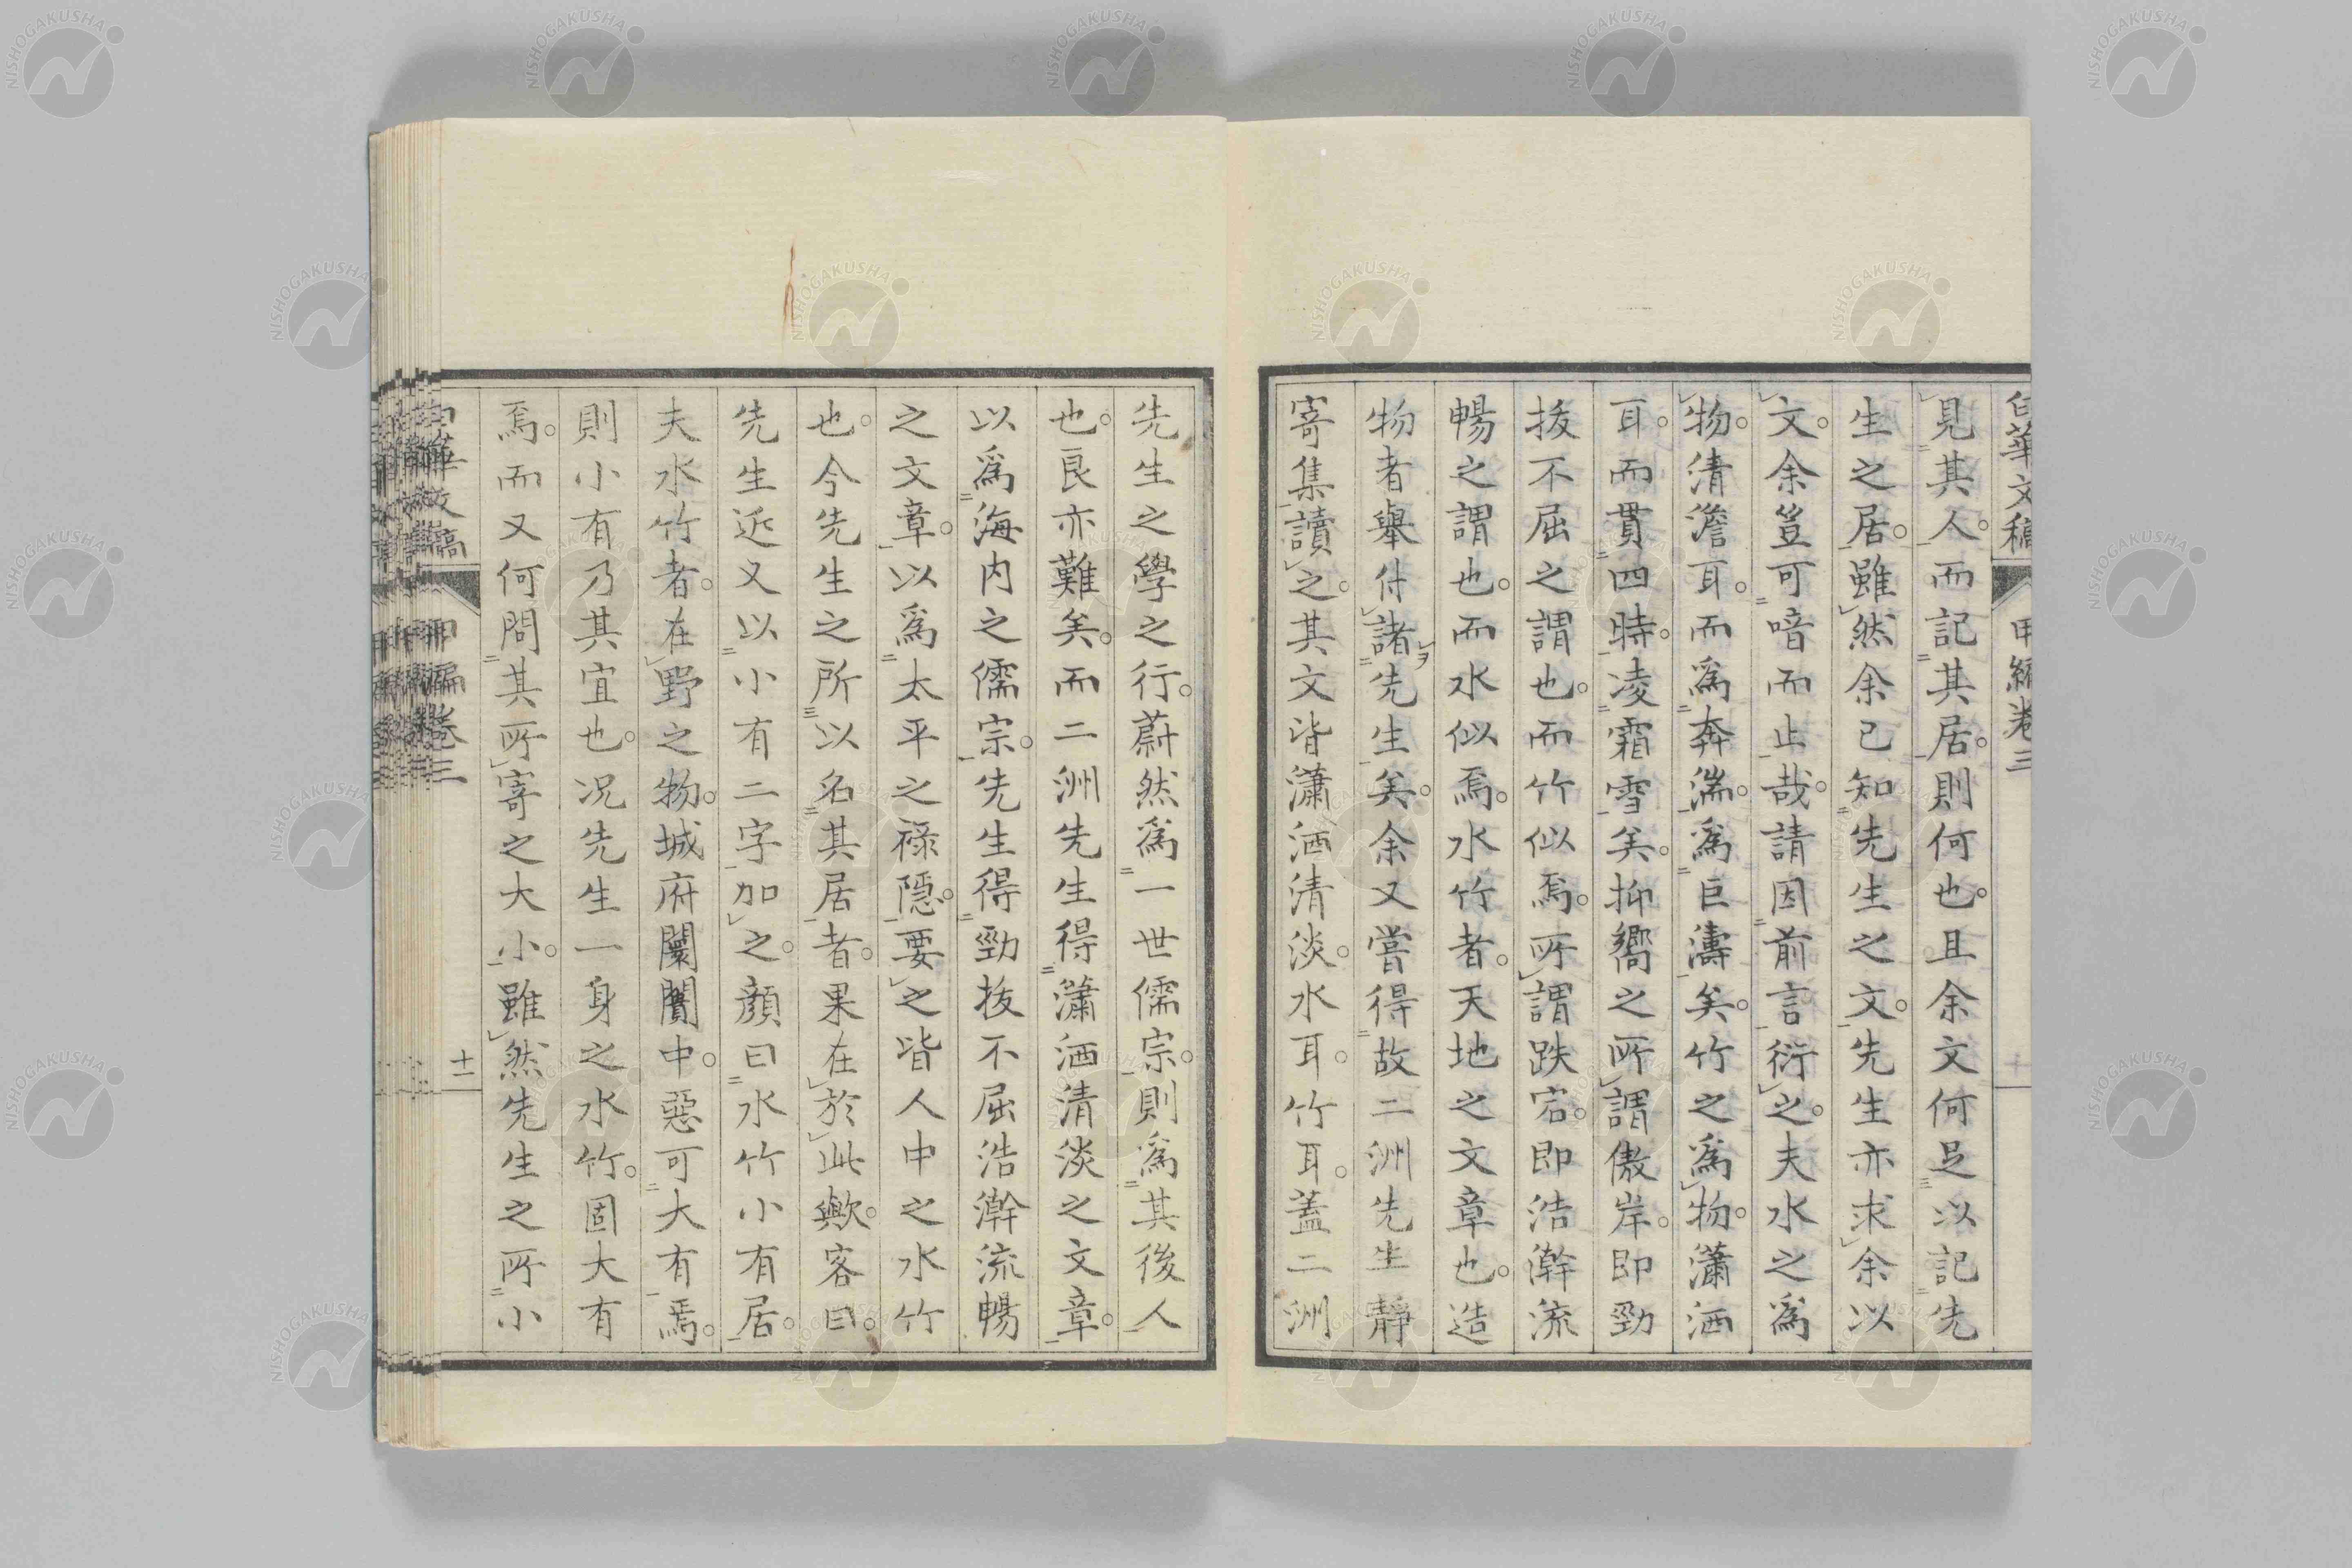 白華文稿 甲編卷三 十
見其人。而記其居。則何也。且余文何足以記先
生之居。雖然余已知先生之文。先生亦求余以
文。余豈可喑而止哉。請因前言衍之。夫水之為
物。清澹耳。而為奔湍。為巨濤矣。竹之為物。瀟洒
耳。而貫四時。凌霜雪矣。抑嚮之所謂傲岸。即勁
拔不屈之謂也。而竹似焉。所謂跌宕。即浩瀚流
暢之謂也。而水似焉。水竹者。天地之文章也。造
物者舉付諸先生矣。余又嘗得故二洲先生靜
寄集讀之。其文皆瀟洒清淡。水耳。竹耳。蓋二洲
先生之學之行。蔚然為一世儒宗。則為其後人
也。艮亦難矣。而二洲先生得瀟洒清淡之文章。
以為海内之儒宗。先生得勁拔不屈浩瀚流暢
之文章。以為太平之祿隠。要之皆人中之水竹
也。今先生之所以名其居者。果在於此歟。客曰。
先生近又以小有二字加之。顔曰水竹小有居。
夫水竹者。在野之物。城府闤闠中。惡可大有焉。
則小有乃其宜也。况先生一身之水竹。固大有
焉。而又何問其所寄之大小。雖然先生之所小
白華文稿 甲編卷三 十一
NISHOGAKUSHA